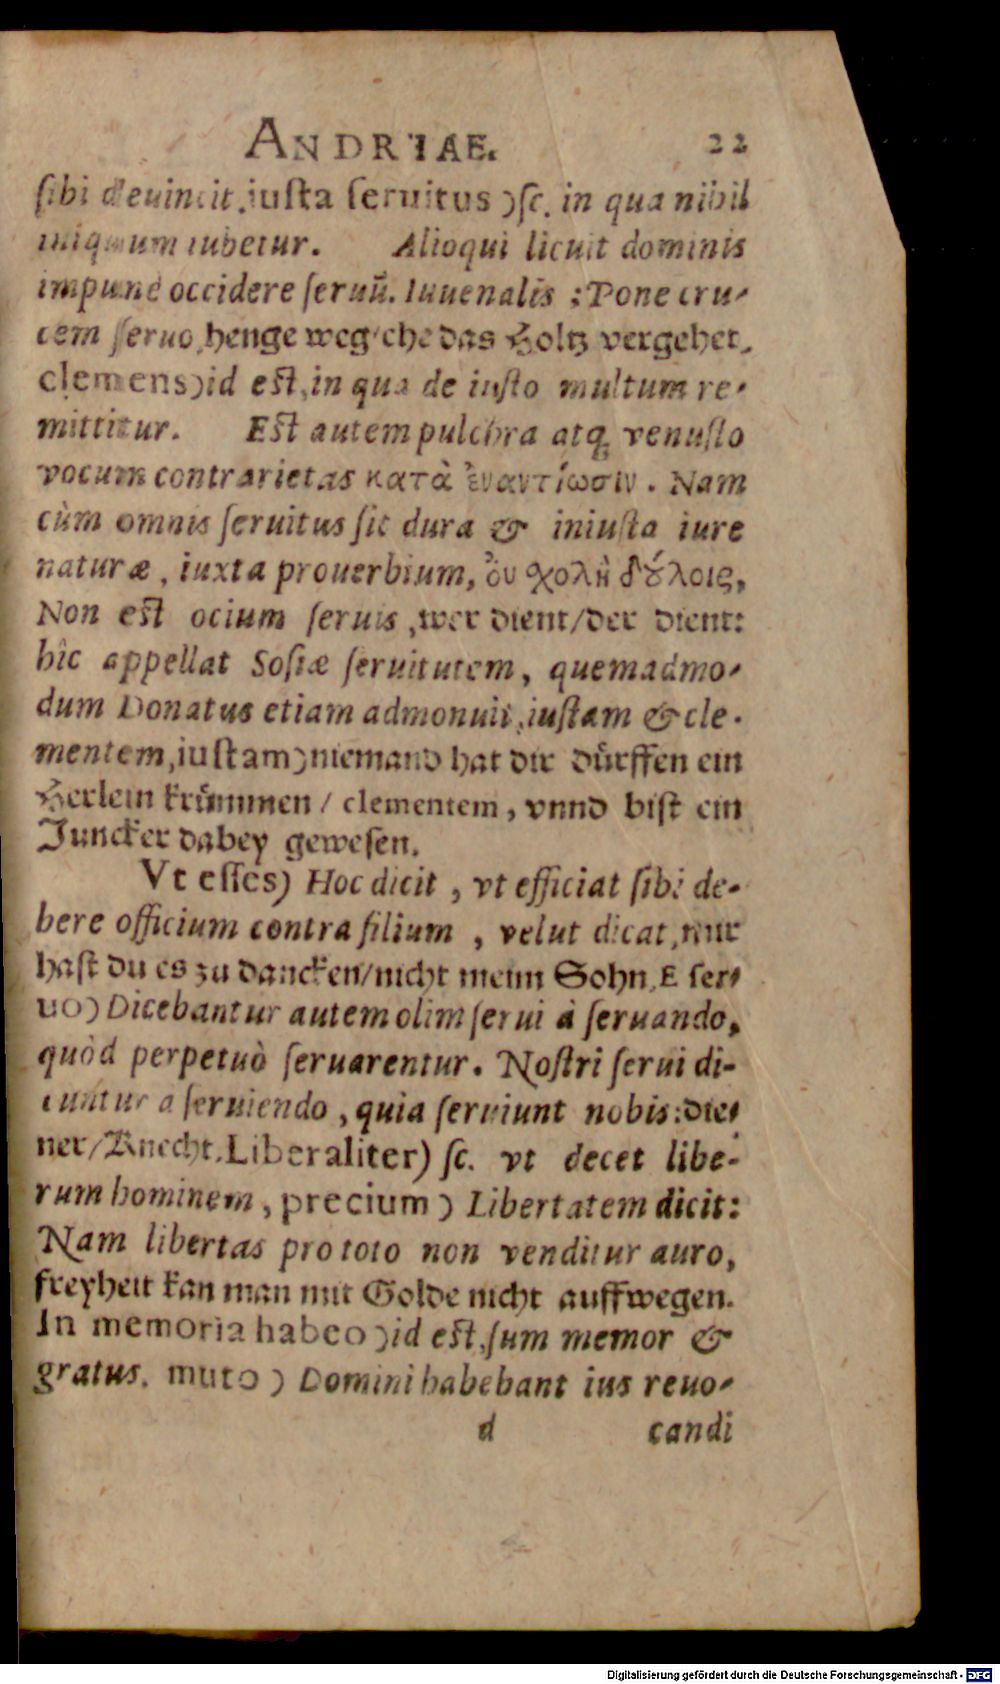 ANDRIAE. 22
ſibi deuincit. iuſta ſeruitus) ſc. in qua nihil
iniquum iubetur. Alioqui licuit dominis
impunè occidere ſeruũ. Iuuenalis : Pone cru-
cem ſeruo, henge weg / ehe das Holtz vergehet.
clemens) id est, in qua de iuſto multum re-
mittitur. Est autem pulchra atq; venuſto
vocum contrarietas κατὰ ἐναντίωσιν. Nam
cùm omnis ſeruitus ſit dura & iniuſta iure
naturæ, iuxta prouerbium, ὀυ χολὴ δούλοις,
Non est ocium ſeruis, wer dient/der dient:
hîc appellat Soſiæ ſeruitutem, quemadmo-
dum Donatus etiam admonuit, iuſtam & cle-
mentem, iuſtam) niemand hat dir dürffen ein
Herlein krümmen / clementem, vnnd biſt ein
Juncker dabey geweſen.
Vt eſſes) Hoc dicit, vt efficiat ſibi de-
bere officium contra filium, velut dicat, mir
haſt du es zu dancken/nicht meim Sohn. E ſer-
uo) Dicebantur autem olim ſerui à ſeruando,
quòd perpetuò ſeruarentur. Noſtri ſerui di-
cuntur a ſeruiendo, quia ſeruiunt nobis: die-
ner/Knecht. Liberaliter) ſc. vt decet libe-
rum hominem, precium) Libertatem dicit:
Nam libertas pro toto non venditur auro,
freyheit kan man mit Golde nicht auffwegen.
In memoria habeo) id est, ſum memor &
gratus. muto) Domini habebant ius reuo-
d candi
Digitalisierung gefördert durch die Deutsche Forschungsgemeinschaft - DFG